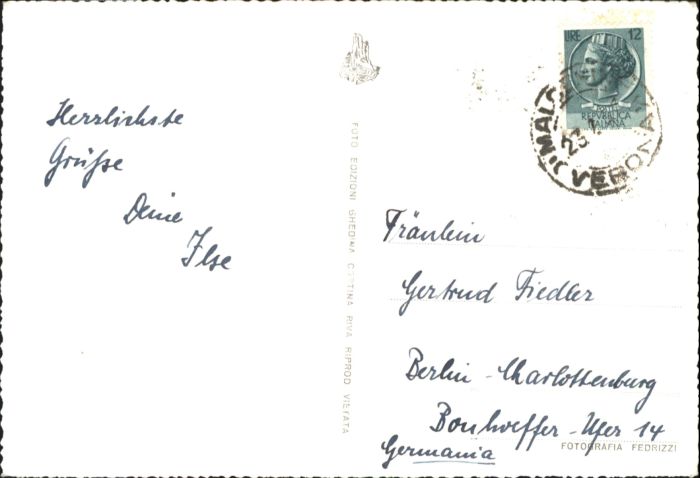 Herrlichste
Grüße
Deine
Ilse
FOTO EDIZIONI GHEDINA CORTINA RIVA RIPROD VIETATA
LIRE 12
REPVBBLICA
ITALIANA
MALC
VERONA
23
Fräulein
Gertrud Fiedler
Berlin-Charlottenburg
Bonhoeffer-Ufer 14
Germania
FOTOGRAFIA FEDRIZZI